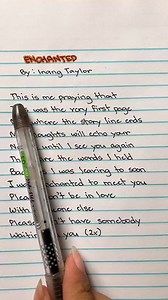 ENCHANTED
By: Inang Taylor
This is me praying that
was the very first page
where the story line ends
thoughts will echo your
until I see you again
are the words I held
I was leaving to soon
enchanted to meet you
don't be in love
one else
Please have somebody
Waiting you (2x)